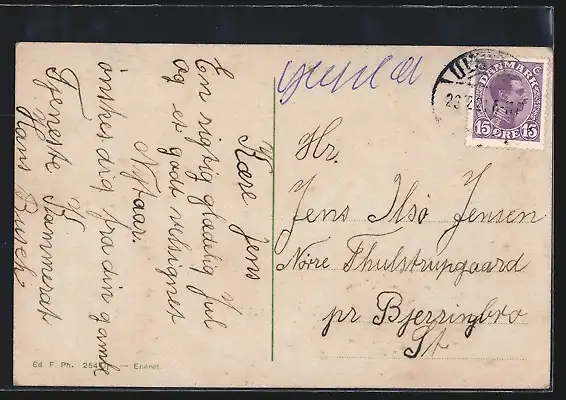 Kære Jens
En rigtig glædelig Jul
og et godt velsignet
Nytaar.
ønskes dig fra din gamle
Tjeneste Kammerat
Hans Busch
Hr.
Jens Ilsø Jensen
Nørre Thulstrupgaard
pr Bjerringbro
St
DANMARK
15 ØRE 15
Ed F. Ph. Eneret